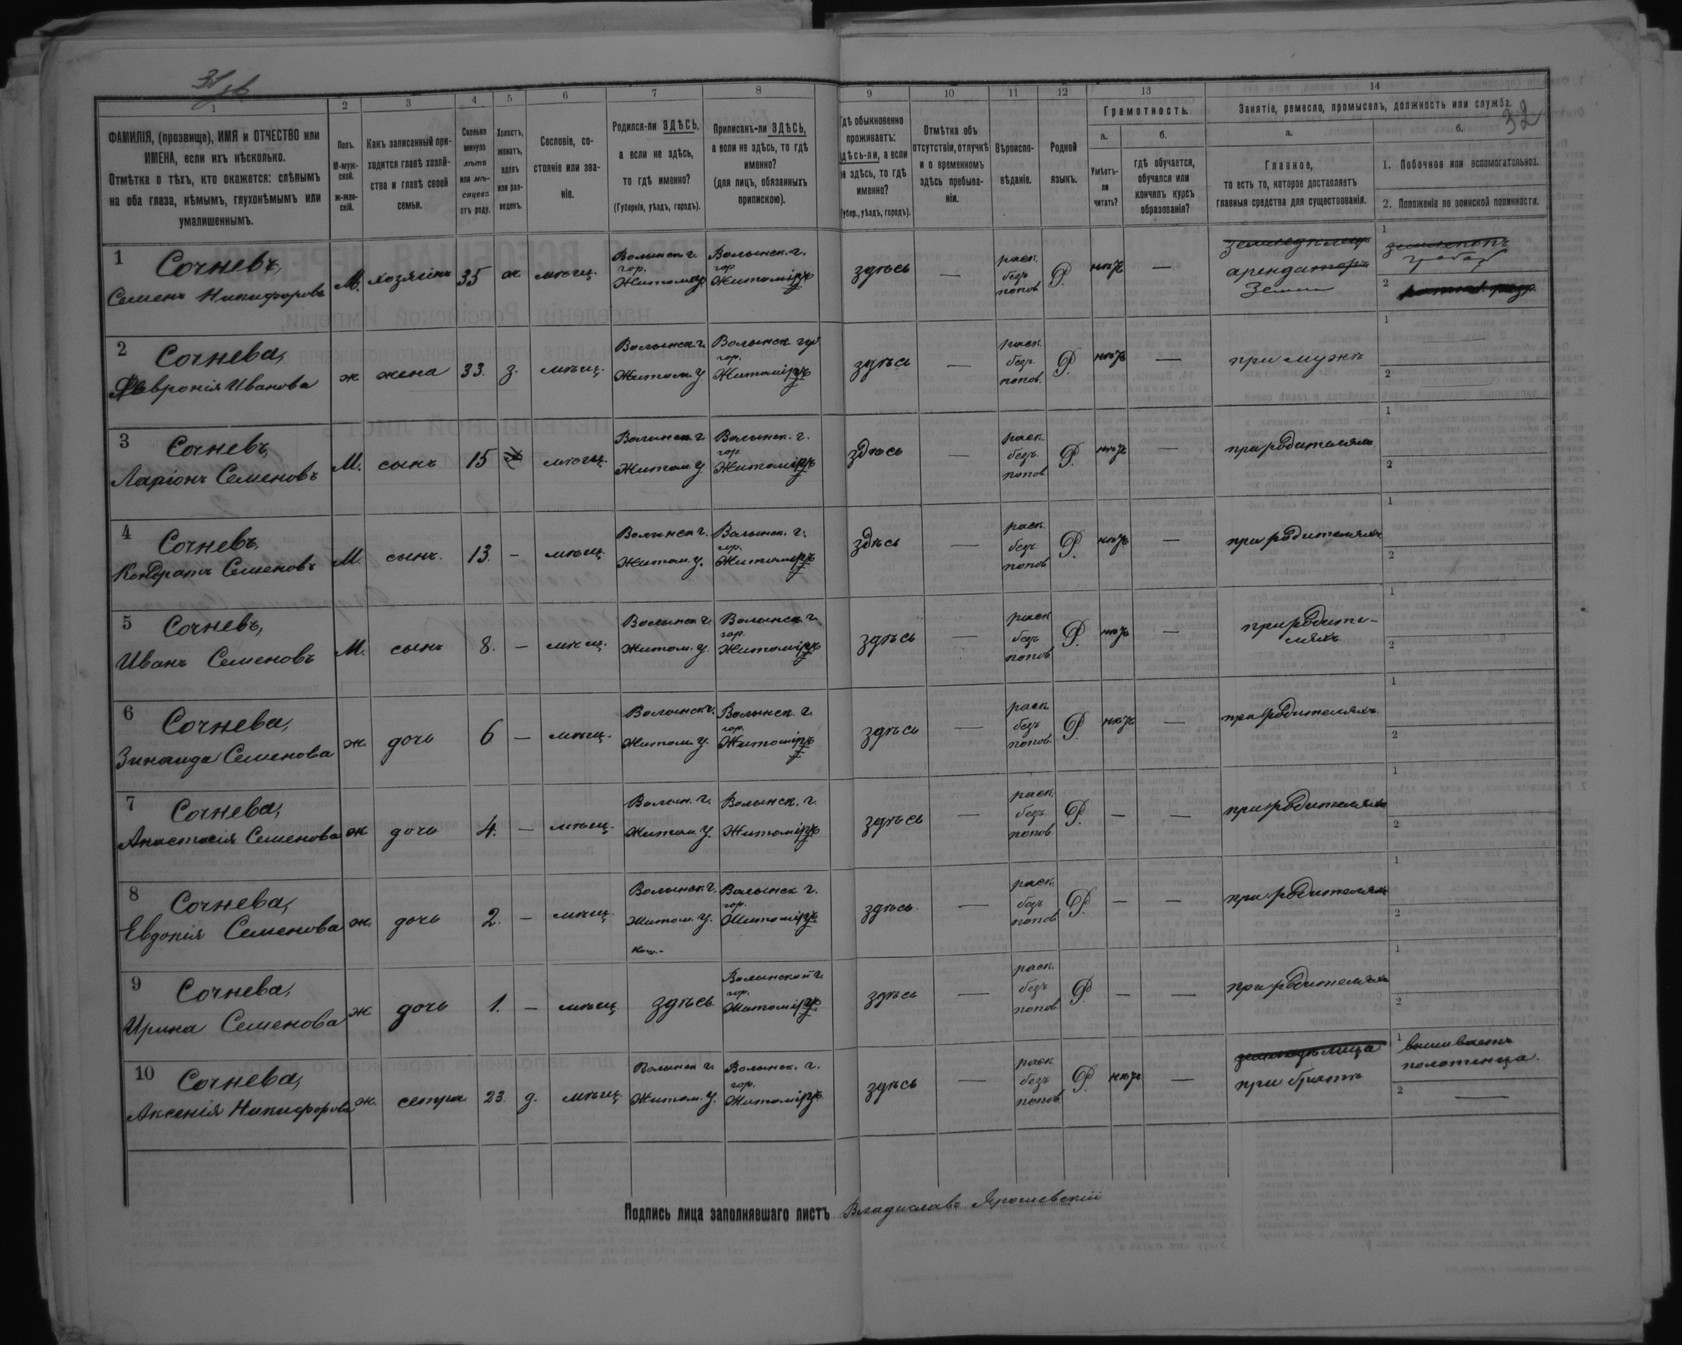 32
1
2
3
4
5
6
7
8
9
10
11
12
13
14
ФАМИЛІЯ, (прозвище), ИМЯ и ОТЧЕСТВО или
ИМЕНА, если ихъ нѣсколько.
Отмѣтка о тѣхъ, кто окажется: слѣпымъ
на оба глаза, нѣмымъ, глухонѣмымъ или
умалишеннымъ.
Полъ.
М-муж-
ской.
Ж-жен-
скій.
Какъ записанный при-
ходится главѣ хозяй-
ства и главѣ своей
семьи.
Сколько
минуло
лѣтъ
или мѣ-
сяцевъ
отъ роду.
Холостъ,
женатъ,
вдовъ
или раз-
веденъ.
Сословіе, со-
стояніе или зва-
ніе.
Родился-ли ЗДѢСЬ,
а если не здѣсь,
то гдѣ именно?
(Губернія, уѣздъ, городъ).
Приписанъ-ли ЗДѢСЬ,
а если не здѣсь, то гдѣ
именно?
(для лицъ, обязанныхъ
припискою).
Гдѣ обыкновенно
проживаетъ:
здѣсь-ли, а если
не здѣсь, то гдѣ
именно?
(Губер., уѣздъ, городъ).
Отмѣтка объ
отсутствіи, отлучкѣ
и о временномъ
здѣсь пребыва-
ніи.
Вѣроиспо-
вѣданіе.
Родной
языкъ.
Грамотность.
а.
Умѣетъ-
ли
читать?
б.
гдѣ обучается,
обучался или
кончилъ курсъ
образованія?
Занятіе, ремесло, промыселъ, должность или служба.
а.
Главное,
то есть то, которое доставляетъ
главныя средства для существованія.
б.
1. Побочное или вспомогательное.
2. Положеніе по воинской повинности.
1 Сочневъ,
Семенъ Никифоровъ М. хозяинъ 35 ж мѣщ. Волынск. г. гор. Житомиръ Волынск. г. гор. Житоміръ здѣсь — раск. безъ попов Р. нѣтъ — арендаторъ земли
2 Сочнева,
Февронія Иванова ж жена 33. з. мѣщ. Волынск г. Житом. у Волынск гу гор. Житоміръ здѣсь — раск. безъ попов. Р. нѣтъ — при мужѣ
3 Сочневъ,
Ларіонъ Семеновъ М. сынъ 15 мѣщ. Волынск г. Житом. у Волынск. г. гор. Житоміръ здѣсь — раск. безъ попов Р. нѣтъ — при родителяхъ
4 Сочневъ,
Кондратъ Семеновъ М. сынъ. 13. — мѣщ. Волынск г. Житом. у. Волынск. г. гор. Житоміръ здѣсь — раск. безъ попов Р. нѣтъ — при родителяхъ
5 Сочневъ,
Иванъ Семеновъ М. сынъ 8. — мѣщ. Волынск г. Житом. у. Волынск г. гор. Житоміръ здѣсь — раск. безъ попов Р. нѣтъ — при родите-
ляхъ
6 Сочнева,
Зинаида Семенова ж. дочь 6 — мѣщ. Волынск г. Житом у. Волынск г. гор. Житоміръ здѣсь — раск. безъ попов. Р. нѣтъ — при родителяхъ
7 Сочнева,
Анастасія Семенова ж дочь 4. — мѣщ. Волын. г. Житом у. Волынск. г. Житоміръ здѣсь — раск. безъ попов. Р. — — при родителяхъ
8 Сочнева,
Евдокія Семенова ж. дочь 2. — мѣщ. Волынск г. Житом. у. Волынск г. гор. Житоміръ здѣсь — раск. безъ попов Р. — — при родителяхъ
9 Сочнева,
Ирина Семенова ж дочь 1. — мѣщ здѣсь Волынской г. гор. Житоміръ здѣсь — раск. безъ попов Р. — — при родителяхъ
10 Сочнева,
Аксенія Никифорова ж. сестра 23. д. мѣщ. Волынск г. Житом. у. Волынск. г. гор. Житоміръ здѣсь — раск. безъ попов Р. нѣтъ — при братѣ вышиваетъ полотенца.
Подпись лица заполнявшаго листъ Владиславъ Ярошевскій